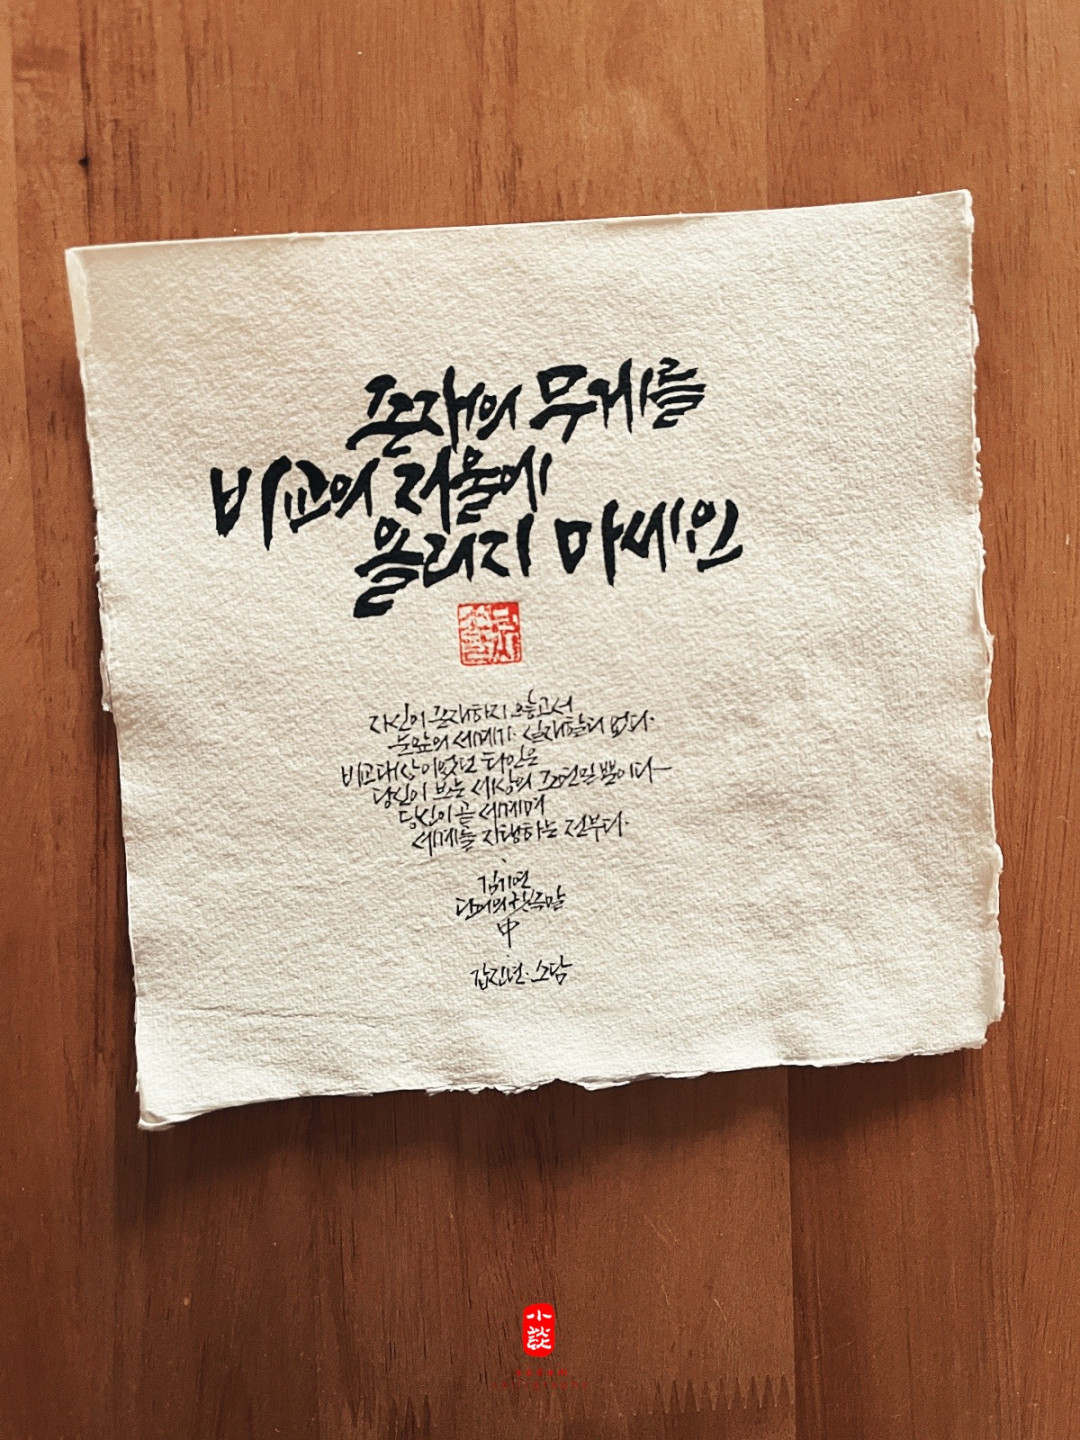 존재의 무게를
비교의 저울에
올리지 마세요
자신이 존재하지 않고서
눈앞의 세계가 실재할리 없다.
비교대상이었던 타인은
당신이 보는 세상의 조연일 뿐이다
당신이 곧 세계며
세계를 지탱하는 전부다.
김기연
단어의 귓속말
中
갑진년. 소담
小談